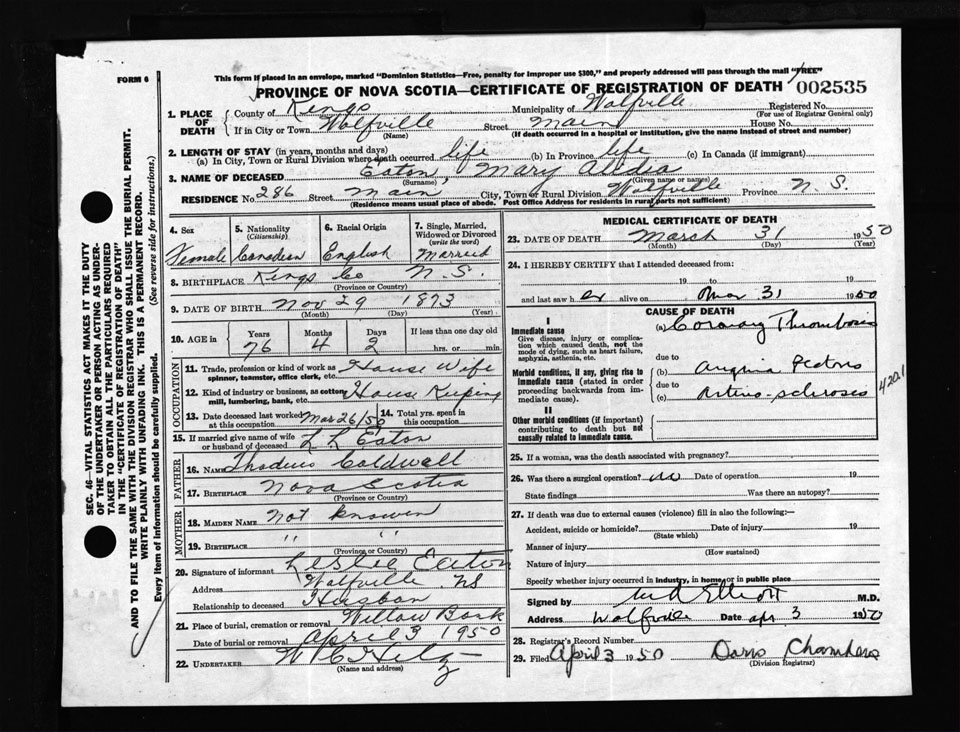 This form if placed in an envelope, marked "Dominion Statistics—Free, penalty for improper use $300," and properly addressed will pass through the mail "FREE"
FORM 6
PROVINCE OF NOVA SCOTIA—CERTIFICATE OF REGISTRATION OF DEATH
002535
SEC. 46—VITAL STATISTICS ACT MAKES IT THE DUTY
OF THE UNDERTAKER OR PERSON ACTING AS UNDER-
TAKER TO OBTAIN ALL THE PARTICULARS REQUIRED
IN THE "CERTIFICATE OF REGISTRATION OF DEATH"
AND TO FILE THE SAME WITH THE DIVISION REGISTRAR WHO SHALL ISSUE THE BURIAL PERMIT.
WRITE PLAINLY WITH UNFADING INK. THIS IS A PERMANENT RECORD.
Every item of information should be carefully supplied. (See reverse side for instructions.)
1. PLACE OF DEATH
County of Kings Municipality of Wolfville Registered No.
(For use of Registrar General only)
If in City or Town Wolfville Street Main House No.
(Name) (If death occurred in a hospital or institution, give the name instead of street and number)
2. LENGTH OF STAY (in years, months and days)
(a) In City, Town or Rural Division where death occurred life (b) In Province life (c) In Canada (if immigrant)
3. NAME OF DECEASED Eaton, Mary
(Surname) (Given name or names)
RESIDENCE No. 286 Street Main City, Town or Rural Division Wolfville Province N.S.
(Residence means usual place of abode. Post Office Address for residents in rural parts not sufficient)
4. Sex 5. Nationality (Citizenship) 6. Racial Origin 7. Single, Married, Widowed or Divorced (write the word)
Female Canadian English Marreid
8. BIRTHPLACE Kings Co N.S.
(Province or Country)
9. DATE OF BIRTH Nov 29 1873
(Month) (Day) (Year)
10. AGE in Years Months Days If less than one day old
76 4 2 hrs. or min.
OCCUPATION
11. Trade, profession or kind of work as spinner, teamster, office clerk, etc. House Wife
12. Kind of industry or business, as cotton mill, lumbering, bank, etc. House Keeping
13. Date deceased last worked at this occupation Mar 26/50 14. Total yrs. spent in this occupation
15. If married give name of wife or husband of deceased L L Eaton
FATHER
16. NAME Thadeus Coldwell
17. BIRTHPLACE Nova Scotia
(Province or Country)
MOTHER
18. MAIDEN NAME Not Knowen
19. BIRTHPLACE " "
(Province or Country)
20. Signature of informant Leslie Eaton
Address Wolfville NS
Relationship to deceased Husban
21. Place of burial, cremation or removal Willow Bank
Date of burial or removal April 3 1950
22. UNDERTAKER
(Name and address)
MEDICAL CERTIFICATE OF DEATH
23. DATE OF DEATH March 31 1950
(Month) (Day) (Year)
24. I HEREBY CERTIFY that I attended deceased from:
19 to 19
and last saw her alive on Mar 31 1950
CAUSE OF DEATH
I
Immediate cause
Give disease, injury or complication which caused death, not the mode of dying, such as heart failure, asphyxia, asthenia, etc.
(a) Coronary Thrombosis
due to
Morbid conditions, if any, giving rise to immediate cause (stated in order proceeding backwards from immediate cause).
(b) Angina Pectoris
due to
(c) Arterio-sclerosis
420.1
II
Other morbid conditions (if important) contributing to death but not causally related to immediate cause.
25. If a woman, was the death associated with pregnancy?
26. Was there a surgical operation? no Date of operation 19
State findings Was there an autopsy?
27. If death was due to external causes (violence) fill in also the following:—
Accident, suicide or homicide? Date of injury 19
(State which)
Manner of injury
(How sustained)
Nature of injury
Specify whether injury occurred in industry, in home, or in public place
Signed by Elliott M.D.
Address Wolfville Date Apr 3 1950
28. Registrar's Record Number
29. Filed April 3 1950 Doris Chambers
(Division Registrar)